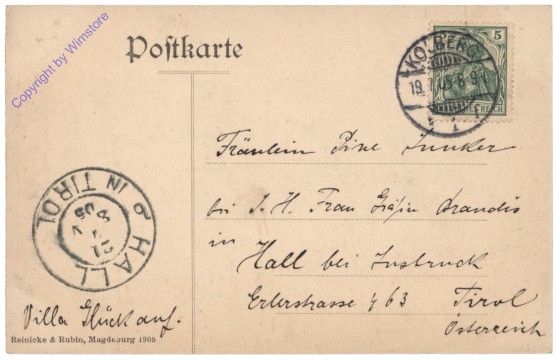 Copyright by Wimstore
Postkarte
5
DEUTSCHES REICH
KOLBERG
19.7.05 8-9
1
Fräulein Pixe Junker
bei I. H. Frau Gräfin Brandis
in
Hall bei Insbruck
Erlerstrasse 463 Tirol
Österreich
HALL IN TIROL
21
05
Villa Glückauf.
Reinicke & Rubin, Magdeburg 1905